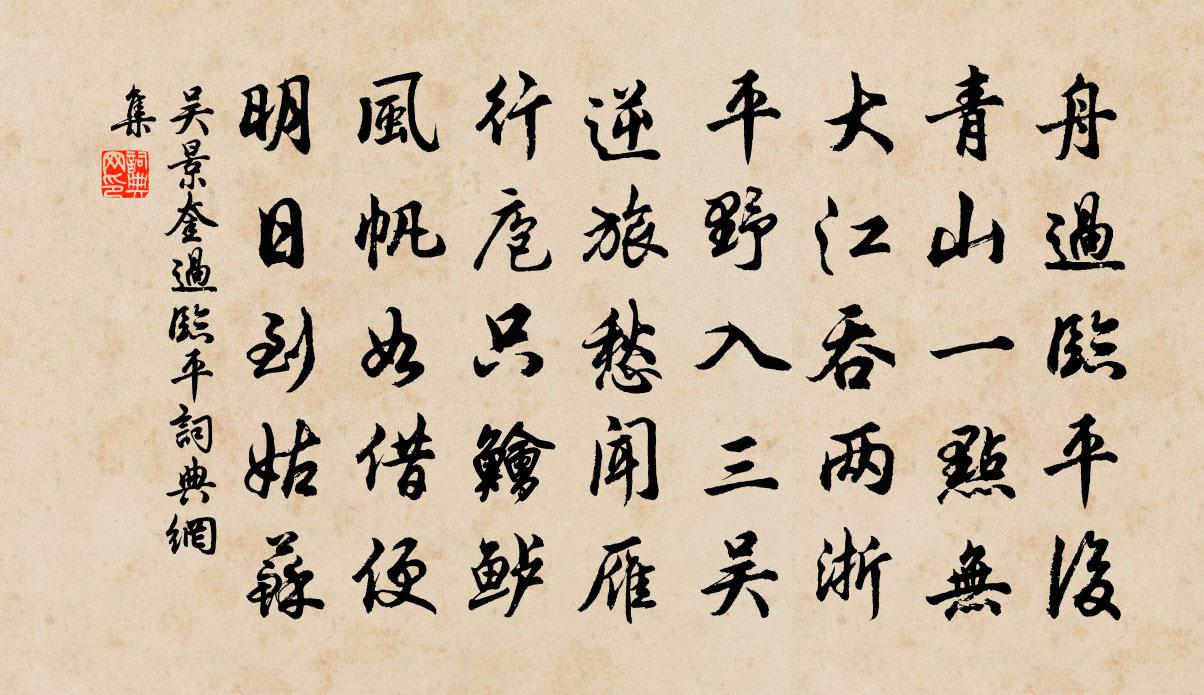 舟過臨平後
青山一點無
大江吞两浙
平野入三吴
逆旅愁聞雁
行庖只鱠鲈
風帆如借便
明日到姑蘇
吴景奎過臨平詞典網
集
詞典网印